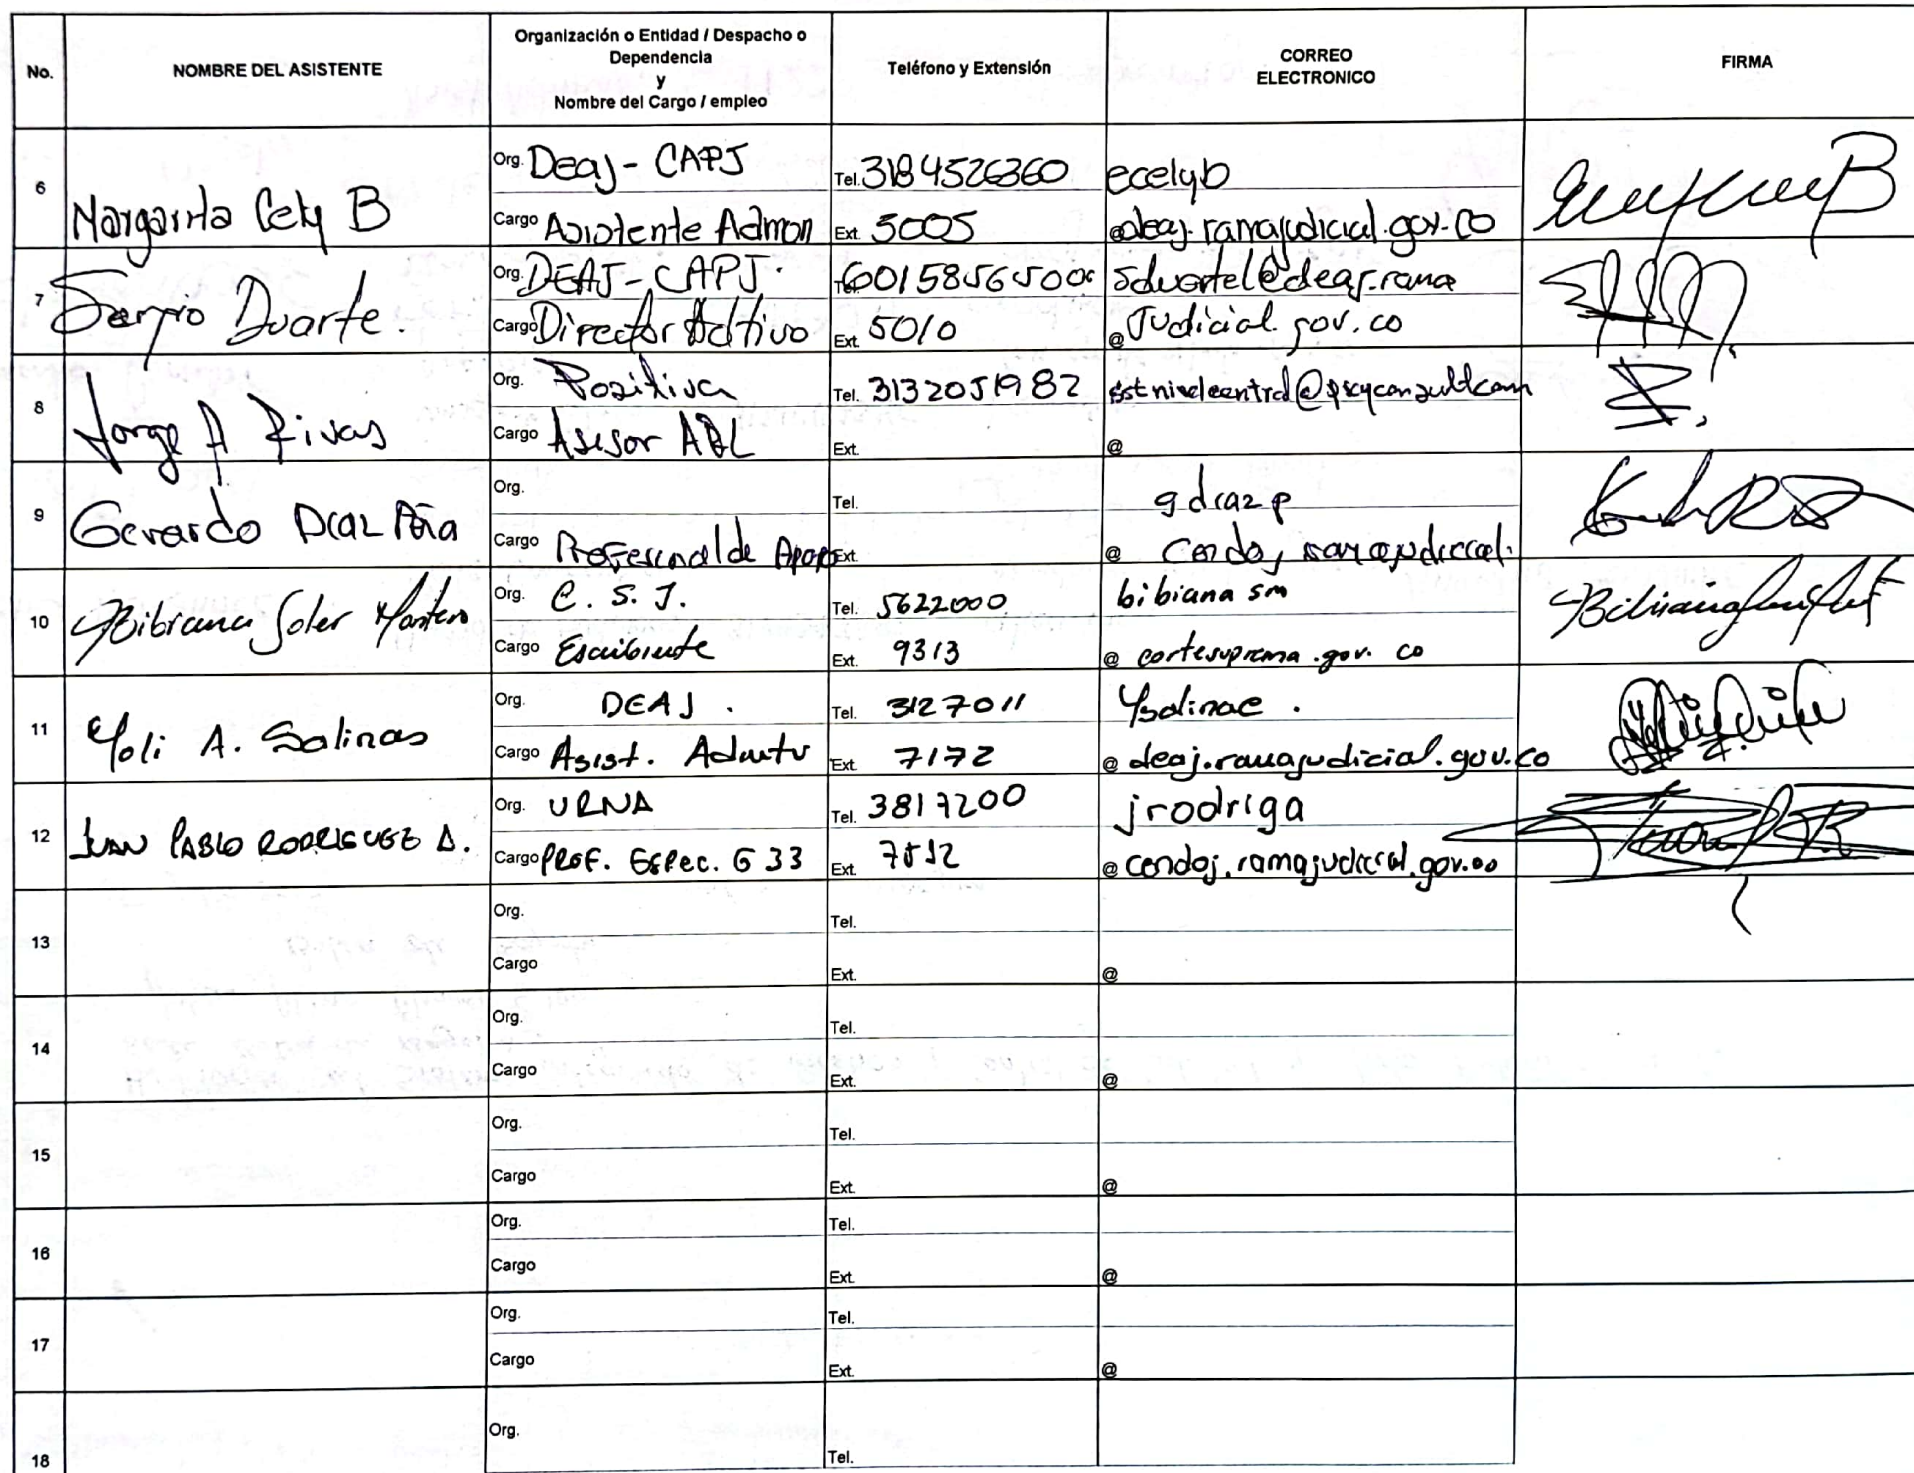 No.
NOMBRE DEL ASISTENTE
Organización o Entidad / Despacho o
Dependencia
y
Nombre del Cargo / empleo
Teléfono y Extensión
CORREO
ELECTRONICO
FIRMA
6
Margarita Cely B
Org. Deaj - CAPJ
Cargo Asistente Admon
Tel. 3184526360
Ext. 5005
ecelyb
@deaj.ramajudicial.gov.co
7
Sergio Duarte.
Org. DEAJ - CAPJ.
Cargo Director Adtivo
Tel.
Ext. 5010
sduartel@deaj.rama
@ Judicial.gov.co
8
Jorge A Rivas
Org. Positiva
Cargo Asesor ARL
Tel. 3132051982
Ext.
@
9
Gerardo Diaz Peña
Org.
Cargo Profesional de Apoyo
Tel.
Ext.
gdiazp
@ cendoj ramajudicial.
10
Bibiana Soler Montero
Org. C. S. J.
Cargo Escribiente
Tel. 5622000
Ext. 9313
bibiana sm
@ cortesuprema.gov.co
11
Yoli A. Salinas
Org. DEAJ.
Cargo Asist. Admtv
Tel. 3127011
Ext. 7172
Ysalinac.
@ deaj.ramajudicial.gov.co
12
JUAN PABLO RODRIGUEZ A.
Org. URNA
Cargo PROF. ESPEC. G 33
Tel. 3817200
Ext. 7512
jrodriga
@ cendoj.ramajudicial.gov.co
13
Org.
Cargo
Tel.
Ext.
@
14
Org.
Cargo
Tel.
Ext.
@
15
Org.
Cargo
Tel.
Ext.
@
16
Org.
Cargo
Tel.
Ext.
@
17
Org.
Cargo
Tel.
Ext.
@
18
Org.
Tel.